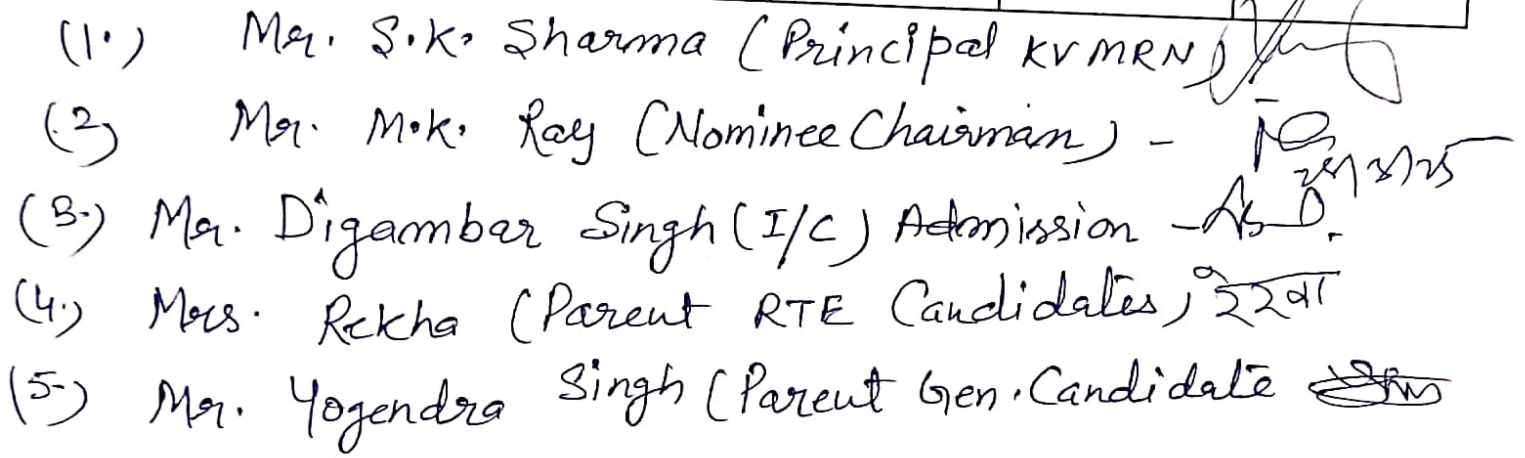 (1.) Mr. S.K. Sharma (Principal KV MRN)
(2) Mr. M.K. Ray (Nominee Chairman) -
(3.) Mr. Digambar Singh (I/C) Admission -
(4.) Mrs. Rekha (Parent RTE Candidates)
(5.) Mr. Yogendra Singh (Parent Gen. Candidate